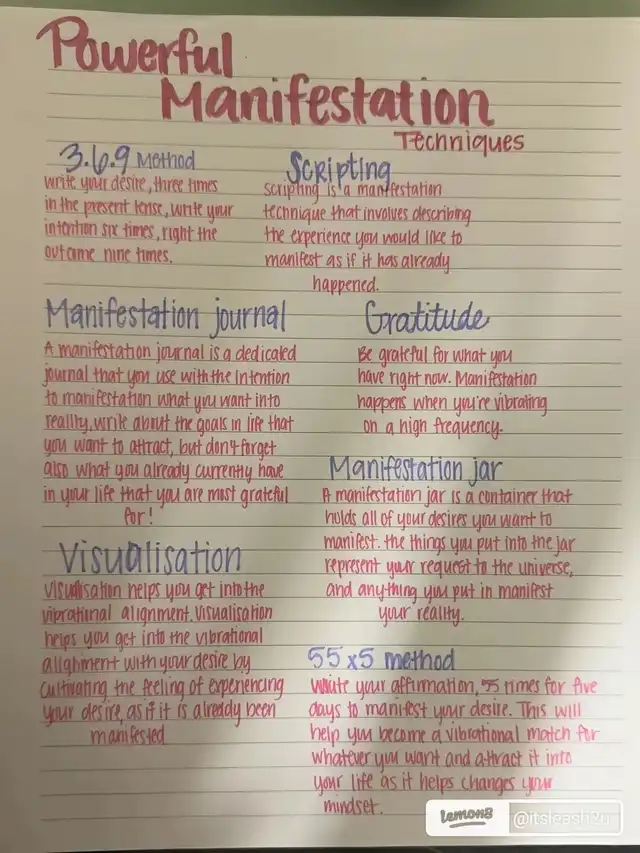 Powerful
Manifestation
Techniques
3.6.9 Method
write your desire, three times
in the present tense, write your
intention six times, right the
outcome nine times.
Scripting
scripting is a manifestation
technique that involves describing
the experience you would like to
manifest as if it has already
happened.
Manifestation journal
A manifestation journal is a dedicated
journal that you use with the intention
to manifestation what you want into
reality, write about the goals in life that
you want to attract, but don't forget
also what you already currently have
in your life that you are most grateful
for!
Gratitude
Be grateful for what you
have right now. Manifestation
happens when you're vibrating
on a high frequency.
Manifestation jar
A manifestation jar is a container that
holds all of your desires you want to
manifest. the things you put into the jar
represent your request to the universe,
and anything you put in manifest
your reality.
Visualisation
Visualisation helps you get into the
vibrational alignment. Visualisation
helps you get into the vibrational
alignment with your desire by
cultivating the feeling of experiencing
your desire, as if it is already been
manifested
55x5 method
Write your affirmation, 55 times for five
days to manifest your desire. This will
help you become a vibrational match for
whatever you want and attract it into
your life as it helps changes your
mindset.
lemon8
@itsleash2u